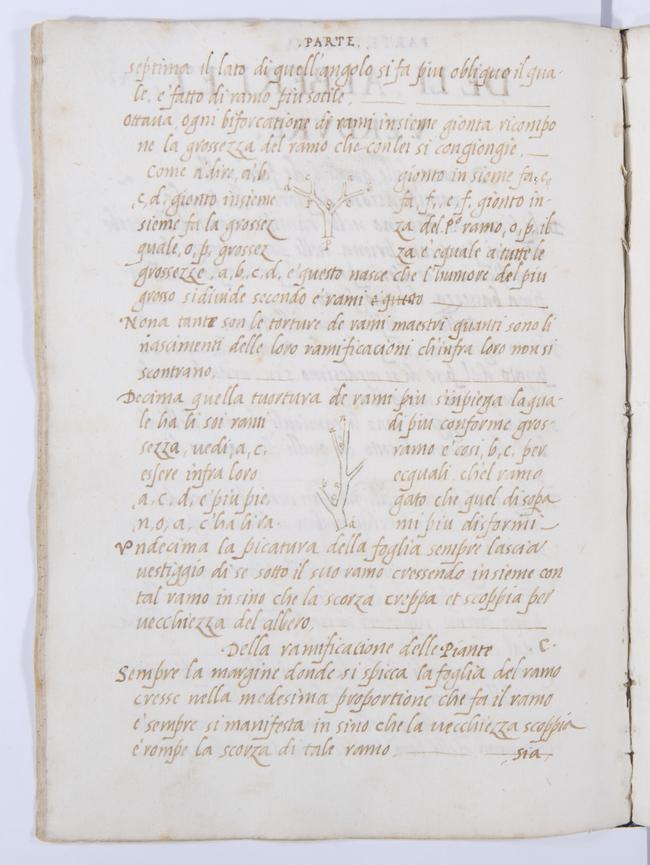 .PARTE.
septima il lato di quell'angolo si fa piu obliquo il qua-
le, e' fatto di ramo piu sotile,
Ottava, ogni biforcatione di rami insieme gionta ricompo
ne la grossezza del ramo che con lei si congiongie,
Come a'dire, a, b, gionto insieme fa, e,
c, d, gionto insieme fa, f, e, e, f, gionto in-
sieme fa la grossez za del P.º ramo, o, p, il
quale, o, p, grossez za e' equale a' tutte le
grossezze, a, b, c, d, e' questo nasce che l'humore del piu
grosso si diuide secondo e' rami e questo
Nona tante son le torture de rami maestri quanti sono li
nascimenti delle loro ramificacioni ch'infra loro non si
scontrano,
Decima quella tuortura de rami piu s'inpiega la qua-
le ha li soi rami di piu conforme gros-
sezza, uedi, a, c, ramo e' cosi, b, c, per
essere infra loro ecquali, ch'el ramo
a, c, d, e' piu pie gato che quel di sopa
n, o, a, c'ha li ra- mi piu disformi
Vndecima la picatura della foglia sempre lascia
uestiggio di se sotto il suo ramo cressendo insieme con
tal ramo insino che la scorza creppa et scoppia per
uecchiezza del albero,
Della ramificacione delle Piante C.
Sempre la margine donde si spicca la foglia del ramo
cresse nella medesima proportione che fa il ramo
e' sempre si manifesta in sino che la uecchiezza scoppia
e' rompe la scorza di tale ramo
sia,